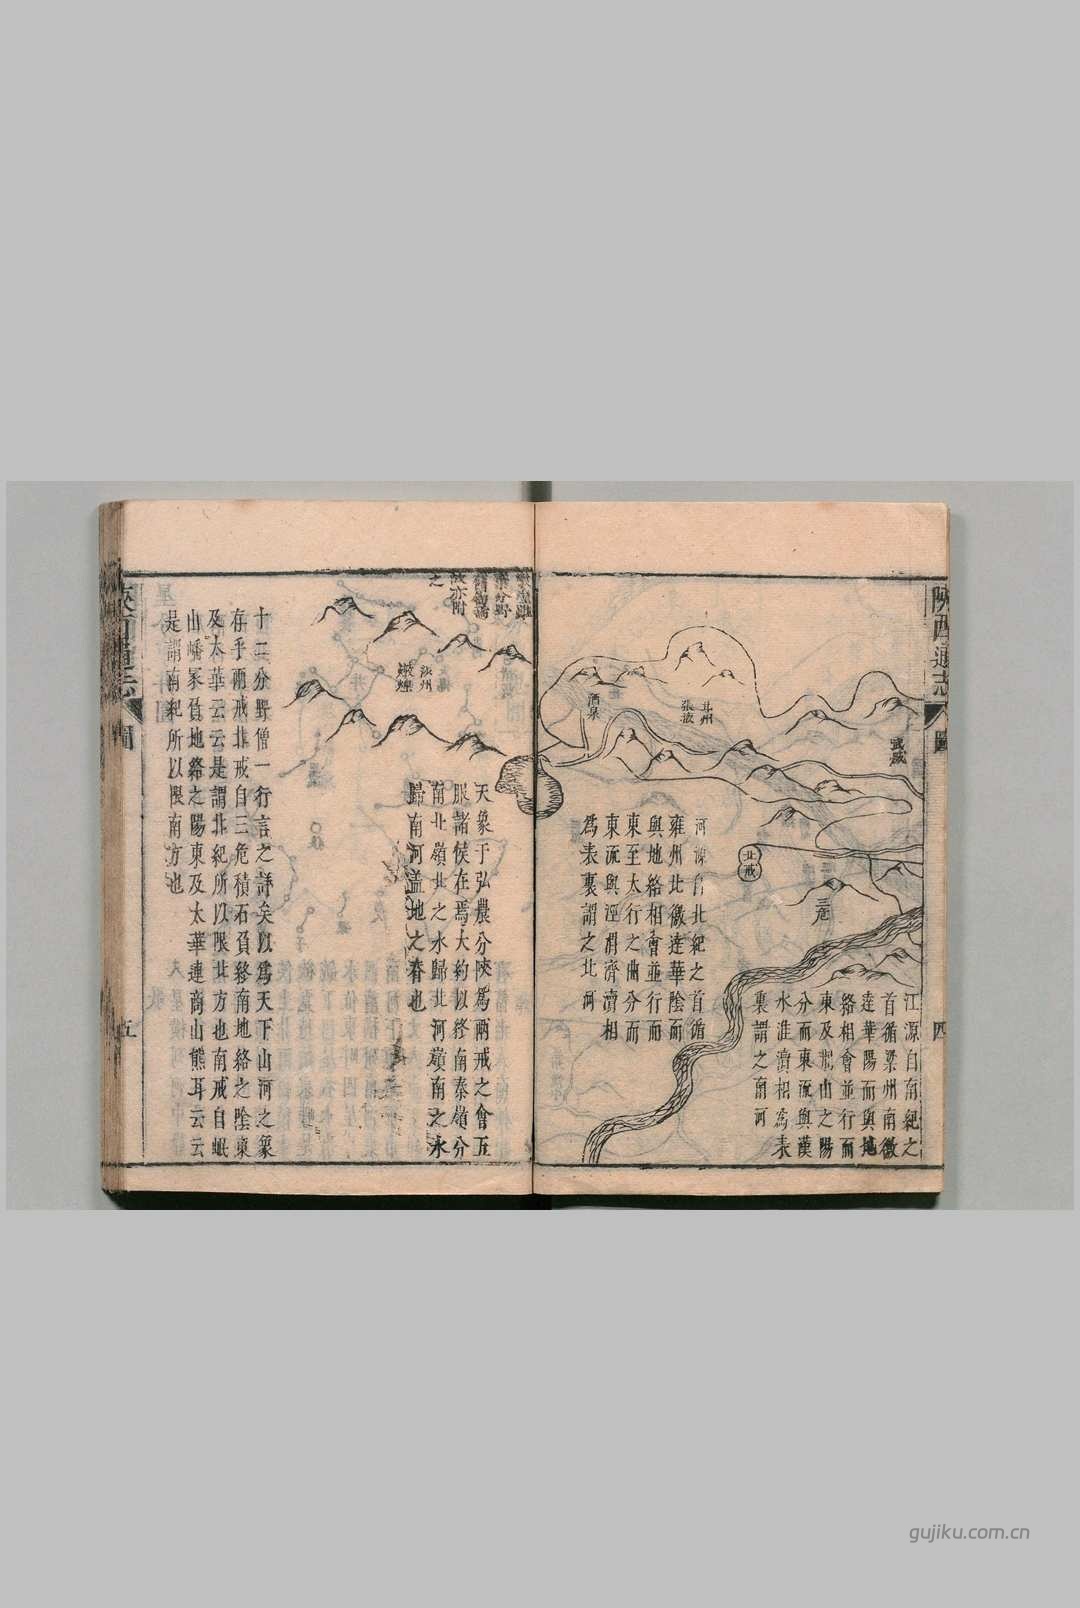 陝西通志
圖
四
武威
甘州
張掖
酒泉
三危
北戒
江源自南紀之
首循梁州南徼
達華陽而與地
絡相會並行而
東及荆山之陽
分而東流與漢
水淮瀆相為表
裏謂之南河
河源自北紀之首循
雍州北徼達華陰而
與地絡相會並行而
東至太行之曲分而
東流與涇渭濟瀆相
為表裏謂之北河
故亦附
之
沙州
燉煌
天象于弘農分陜為兩戒之會五
服諸侯在焉大約以終南秦嶺分
南北嶺北之水歸北河嶺南之水
歸南河蓋地之脊也
十二分野僧一行言之詳矣以為天下山河之象
存乎兩戒北戒自三危積石負終南地絡之陰東
及太華云云是謂北紀所以限北方也南戒自岷
山嶓冢負地絡之陽東及太華連商山熊耳云云
是謂南紀所以限南方也
陝西通志
圖
五
gujiku.com.cn